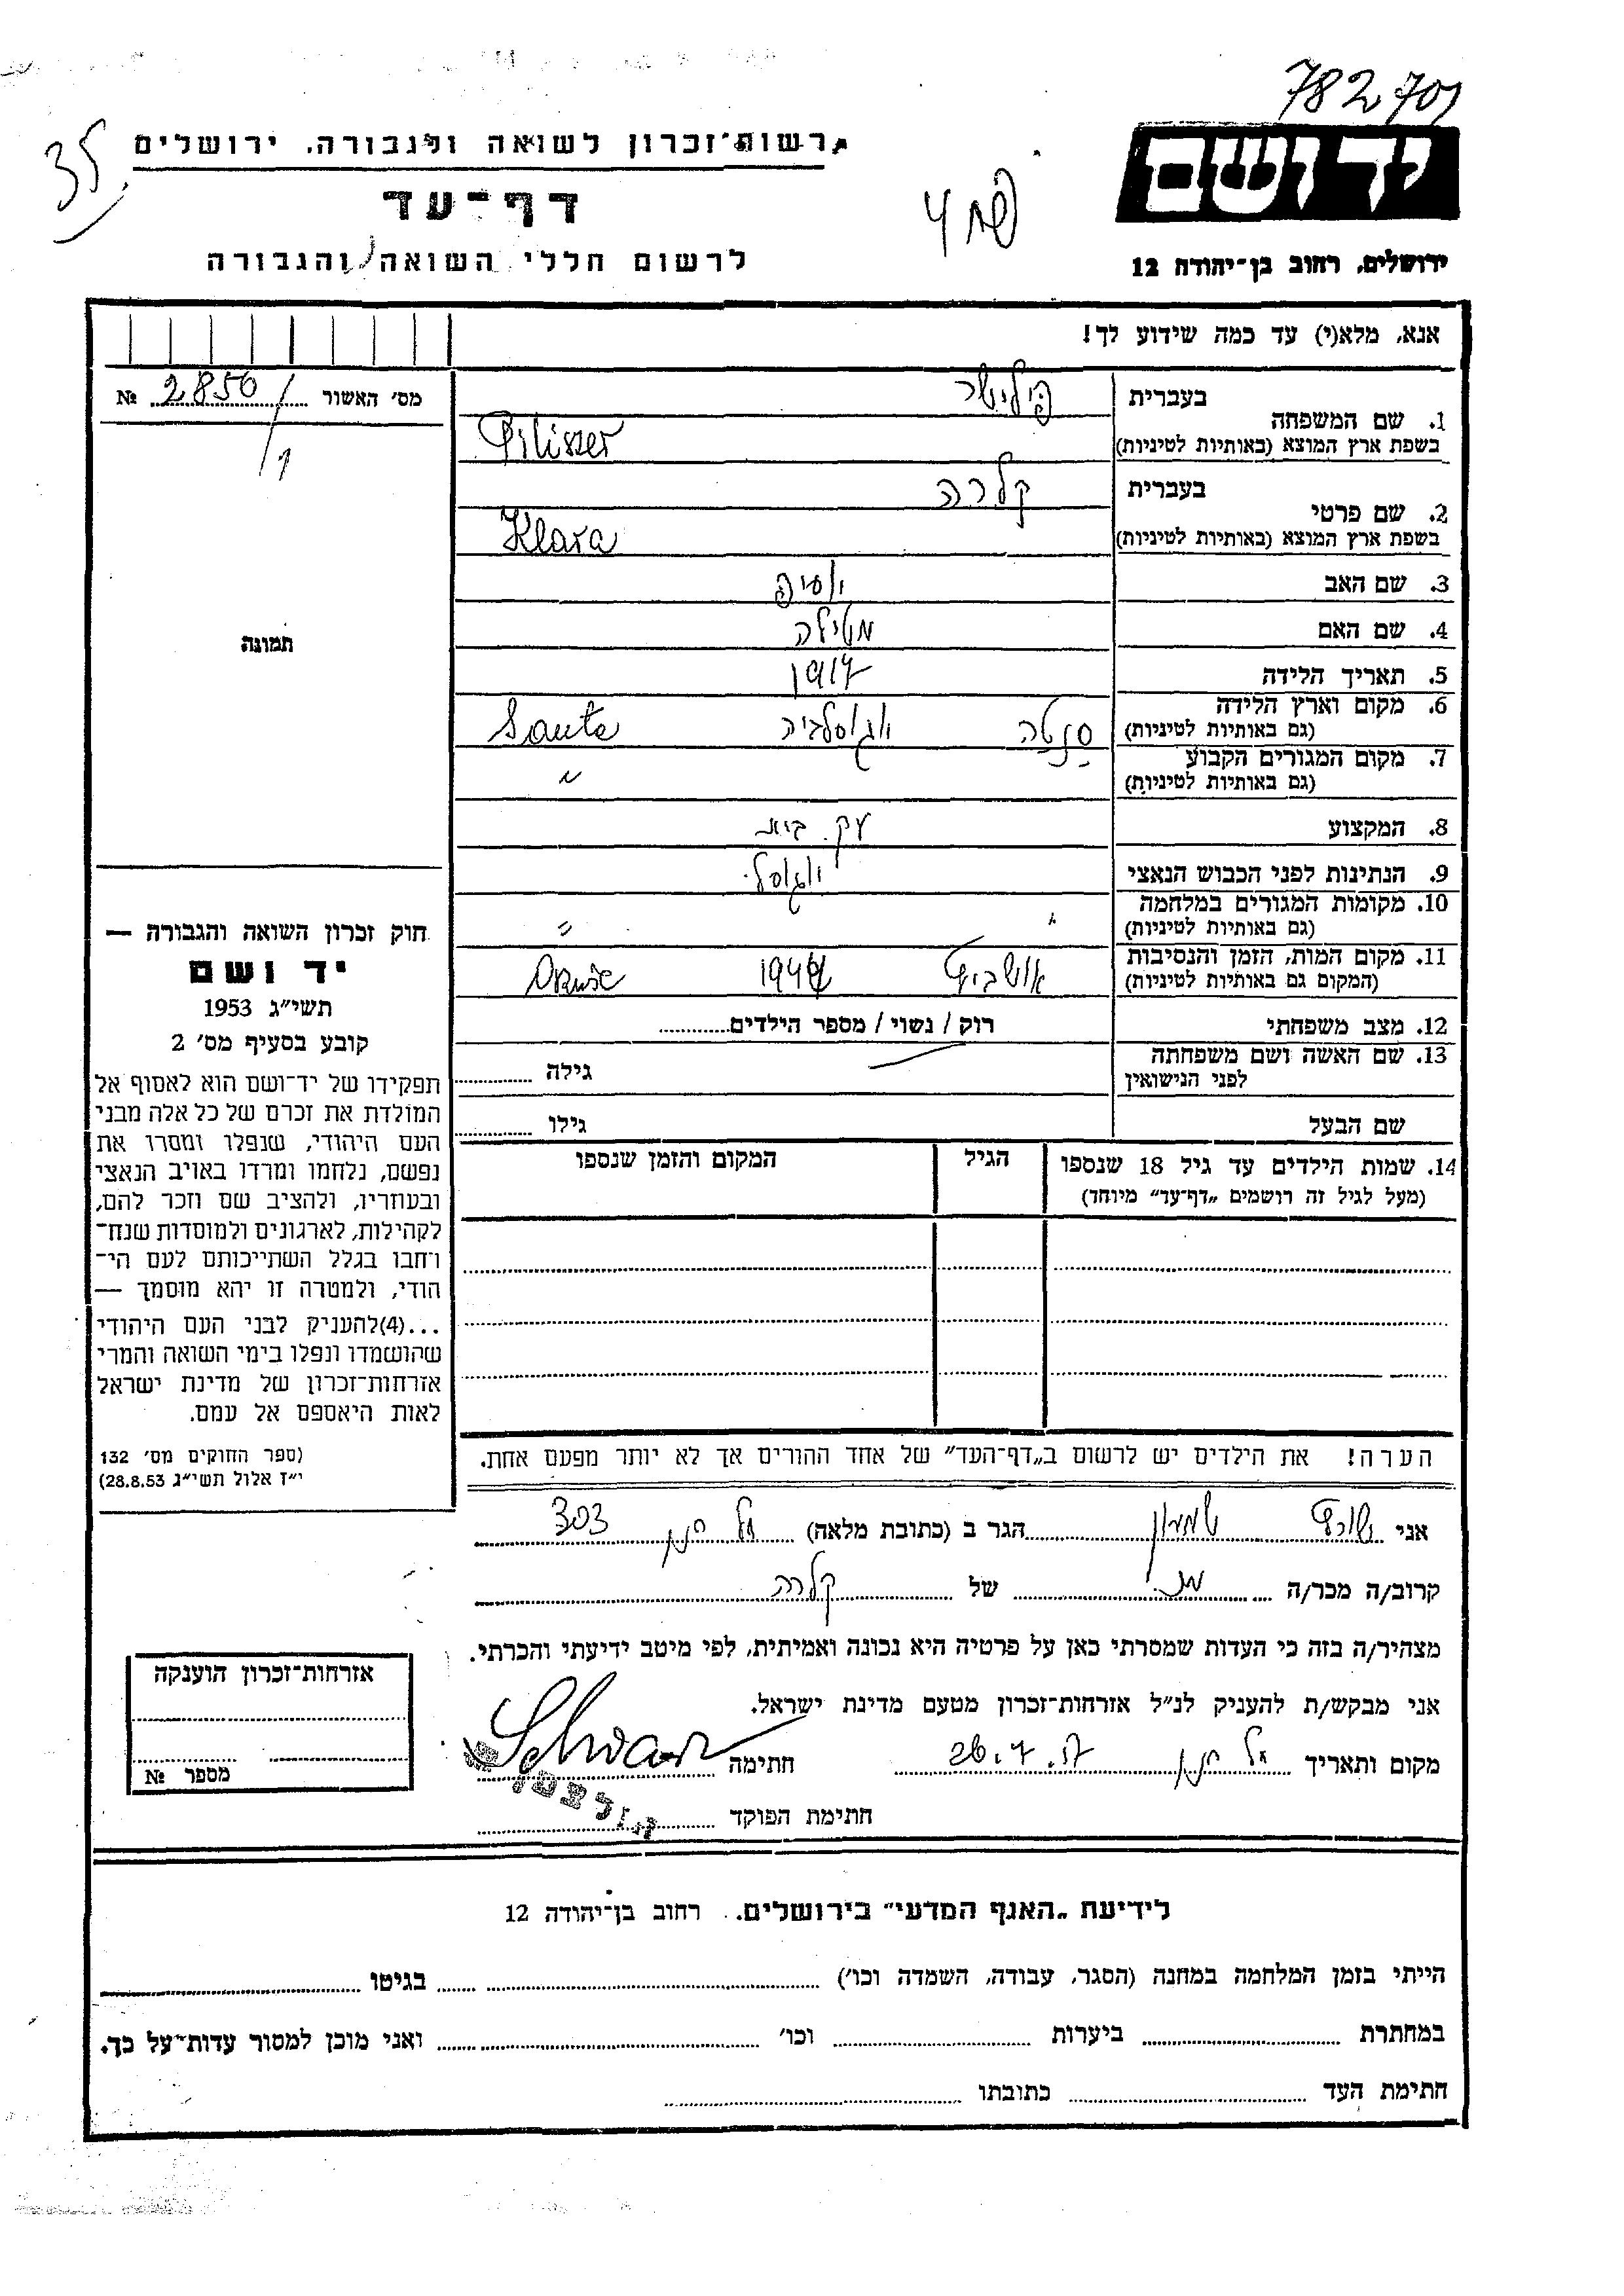 782701
35
רשות־זכרון לשואה ולגבורה, ירושלים
יד ושם
דף־עד
ירושלים, רחוב בן־יהודה 12
לרשום חללי השואה והגבורה
אנא, מלא(י) עד כמה שידוע לך!
מס׳ האשור 2850/1 №
1. שם המשפחה
בעברית פילישר
בשפת ארץ המוצא (באותיות לטיניות) Pilisser
2. שם פרטי
בעברית קלרה
בשפת ארץ המוצא (באותיות לטיניות) Klara
3. שם האב
4. שם האם מטילה
5. תאריך הלידה 1917
6. מקום וארץ הלידה סנטה יוגוסלביה
(גם באותיות לטיניות)
7. מקום המגורים הקבוע "
(גם באותיות לטיניות)
8. המקצוע עק. בית
9. הנתינות לפני הכבוש הנאצי יוגוסל.
10. מקומות המגורים במלחמה "
(גם באותיות לטיניות)
11. מקום המות, הזמן והנסיבות אושביץ 1944
(המקום גם באותיות לטיניות)
12. מצב משפחתי רוק / נשוי / מספר הילדים
13. שם האשה ושם משפחתה
לפני הנישואין גילה
שם הבעל גילו
14. שמות הילדים עד גיל 18 שנספו הגיל המקום והזמן שנספו
(מעל לגיל זה רושמים „דף־עד״ מיוחד)
הערה! את הילדים יש לרשום ב„דף־העד״ של אחד ההורים אך לא יותר מפעם אחת.
תמונה
חוק זכרון השואה והגבורה —
יד ושם
תשי״ג 1953
קובע בסעיף מס׳ 2
תפקידו של יד־ושם הוא לאסוף אל
המולדת את זכרם של כל אלה מבני
העם היהודי, שנפלו ומסרו את
נפשם, נלחמו ומרדו באויב הנאצי
ובעוזריו, ולהציב שם וזכר להם,
לקהילות, לארגונים ולמוסדות שנח־
רחבו בגלל השתייכותם לעם הי־
הודי, ולמטרה זו יהא מוסמך —
...(4)להעניק לבני העם היהודי
שהושמדו ונפלו בימי השואה והמרי
אזרחות־זכרון של מדינת ישראל
לאות היאספם אל עמם.
(ספר החוקים מס׳ 132
י״ז אלול תשי״ג 28.8.53)
אני שורץ שמעון הגר ב (כתובת מלאה) תל חנן 303
קרוב/ה מכר/ה של קלרה
מצהיר/ה בזה כי העדות שמסרתי כאן על פרטיה היא נכונה ואמיתית, לפי מיטב ידיעתי והכרתי.
אני מבקש/ת להעניק לנ״ל אזרחות־זכרון מטעם מדינת ישראל.
מקום ותאריך תל חנן 26.7.57 חתימה Schwarz
חתימת הפוקד
אזרחות־זכרון הוענקה
מספר №
לידיעת „האגף המדעי״ בירושלים. רחוב בן־יהודה 12
הייתי בזמן המלחמה במחנה (הסגר, עבודה, השמדה וכו׳) בגיטו
במחתרת ביערות וכו׳ ואני מוכן למסור עדות־על כך.
חתימת העד כתובתו